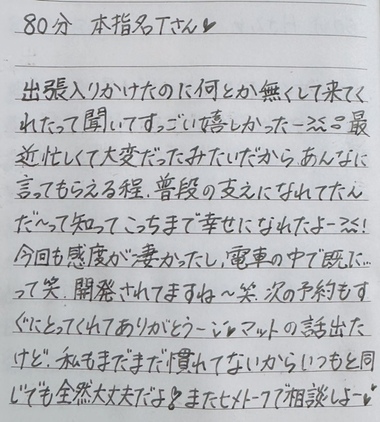 80分 本指名Tさん♥
出張入りかけたのに何とか無くして来てく
れたって聞いてすっごい嬉しかったー>≦°。最
近忙しくて大変だったみたいだから、あんなに
言ってもらえる程、普段の支えになれてたん
だ〜って知ってこっちまで幸せになれたよー>≦!
今回も感度が凄かったし、電車の中で既に…
って笑、開発されてますね〜笑、次の予約もす
ぐにとってくれてありがとう〜♥マットの話出た
けど、私もまだまだ慣れてないからいつもと同
じでも全然大丈夫だよ!またヒメトークで相談しよー♥